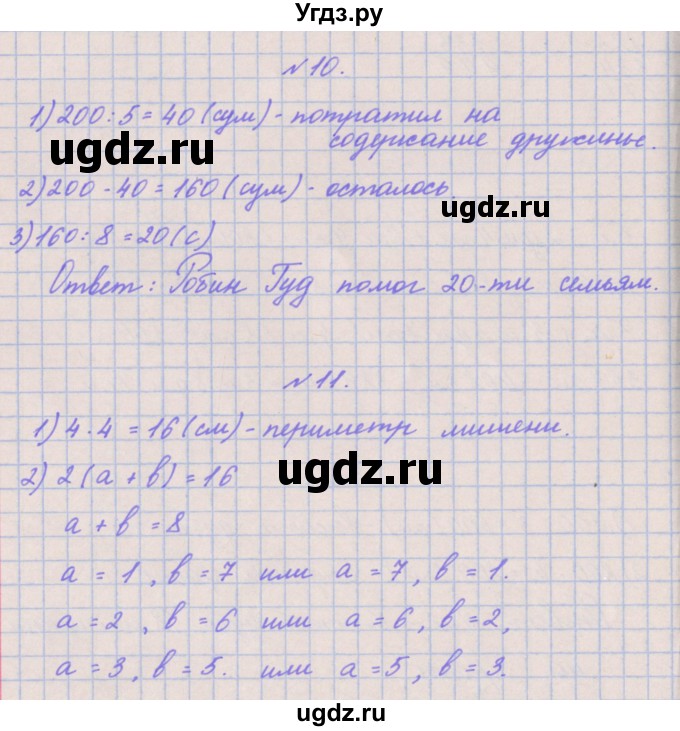 Угдз.ру
№10.
1) 200 : 5 = 40 (сум) - потратил на
содержание дружины.
ugdz.ru
2) 200 - 40 = 160 (сум) - осталось.
ugdz.ru
3) 160 : 8 = 20 (с)
Ответ: Робин Гуд помог 20-ти семьям.
№11.
1) 4 · 4 = 16 (см) - периметр мишени.
ugdz.ru
2) 2 (а + в) = 16
а + в = 8
а = 1, в = 7 или а = 7, в = 1.
а = 2, в = 6 или а = 6, в = 2,
а = 3, в = 5. или а = 5, в = 3.
ugdz.ru